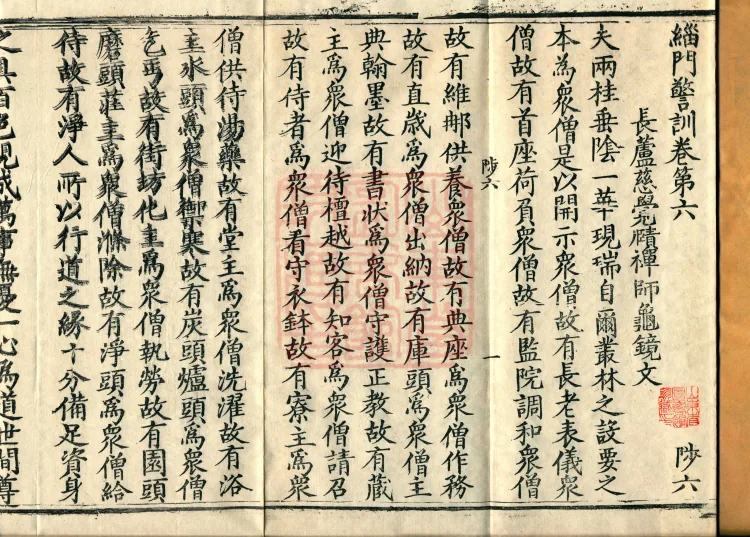 緇門警訓卷第六
陟六
長蘆慈覺賾禪師龜鏡文
夫兩桂垂陰一華現瑞自爾叢林之設要之
本為衆僧是以開示衆僧故有長老表儀衆
僧故有首座荷負衆僧故有監院調和衆僧
陟六
一
故有維那供養衆僧故有典座爲衆僧作務
故有直歲爲衆僧出納故有庫頭爲衆僧主
典翰墨故有書狀爲衆僧守護正教故有藏
主爲衆僧迎待檀越故有知客爲衆僧請召
故有侍者爲衆僧看守衣鉢故有寮主爲衆
僧供侍湯藥故有堂主爲衆僧洗濯故有浴
主水頭爲衆僧禦寒故有炭頭爐頭爲衆僧
乞丐故有街坊化主爲衆僧執勞故有園頭
磨頭莊主爲衆僧滌除故有淨頭爲衆僧給
侍故有淨人所以行道之緣十分備足資身
之具百色現成萬事無憂一心爲道世間尊